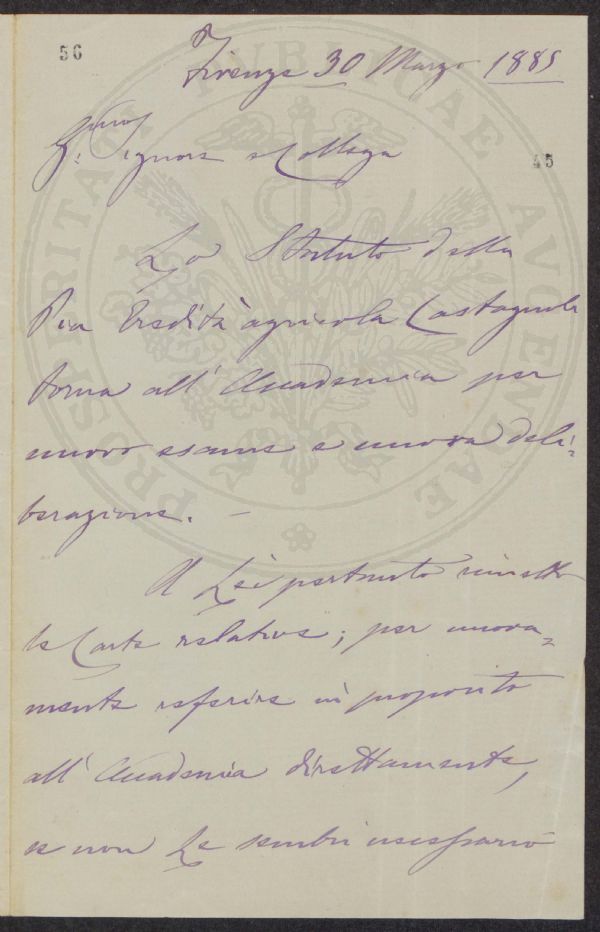 56
Firenze 30 Marzo 1885
Signore e Collega
45
Lo Statuto della
Pia Eredità agricola Castagnoli
torna all' Accademia per
nuovo esame e nuova deli=
berazione. –
A Lei pertanto rimetto
le Carte relative; per nuova=
mente referire in proposito
all' Accademia direttamente,
se non Le sembri necessario
PROSPERITATI PUBLICAE AUGENDAE